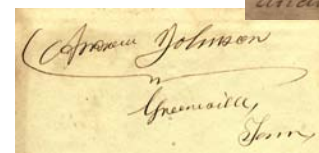 Andrew Johnson
Greenville,
Tenn,